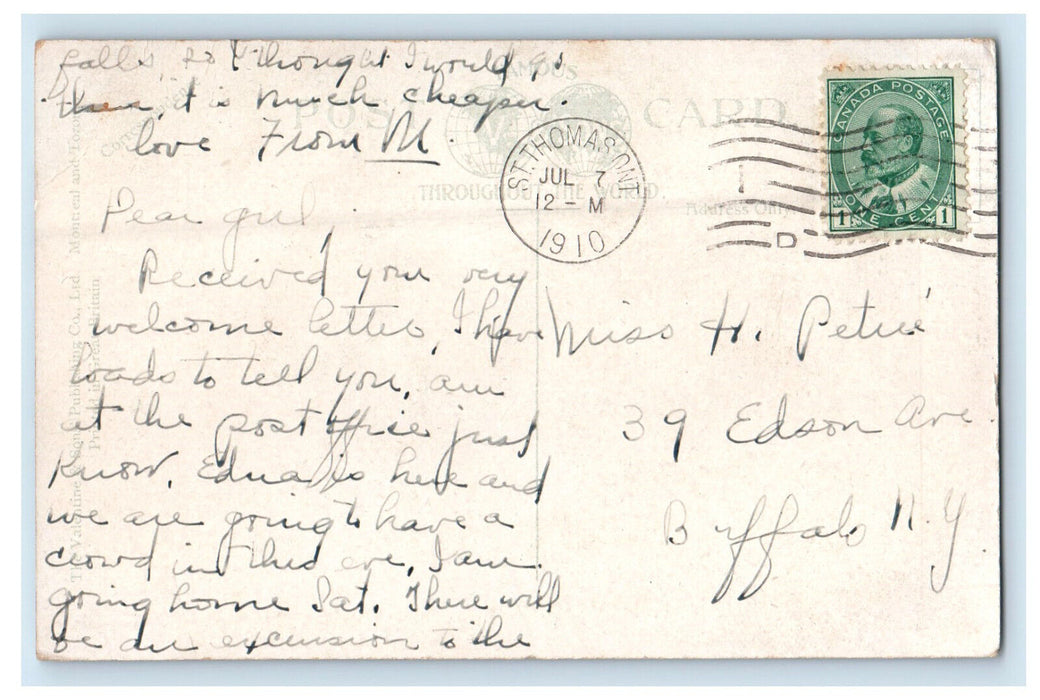 falls, so I thought I would go
then, it is much cheaper.
love From M
FAMOUS
POST CARD
THROUGHOUT THE WORLD.
Address Only
ST. THOMAS, ONT.
JUL 7
12 - M
1910
D
CANADA POSTAGE
1 ONE CENT 1
The Valentine & Sons Publishing Co., Ltd Montreal and Toronto
Printed in Great Britain
Dear girl,
Received your very
welcome letter, I have
loads to tell you, am
at the post office just
know, Edna is here and
we are going to have a
crowd in this eve, I am
going home Sat. There will
be an excursion to the
Miss H. Petrie
39 Edson Ave.
Buffalo N.Y